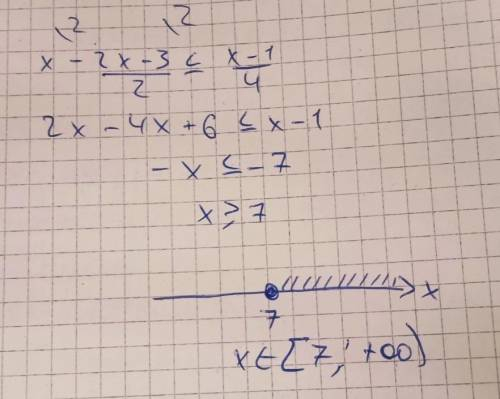 \2 \2
x - (2x-3)/2 ≤ (x-1)/4
2x - 4x + 6 ≤ x - 1
-x ≤ -7
x ≥ 7
x
7
x ∈ [7; +∞)